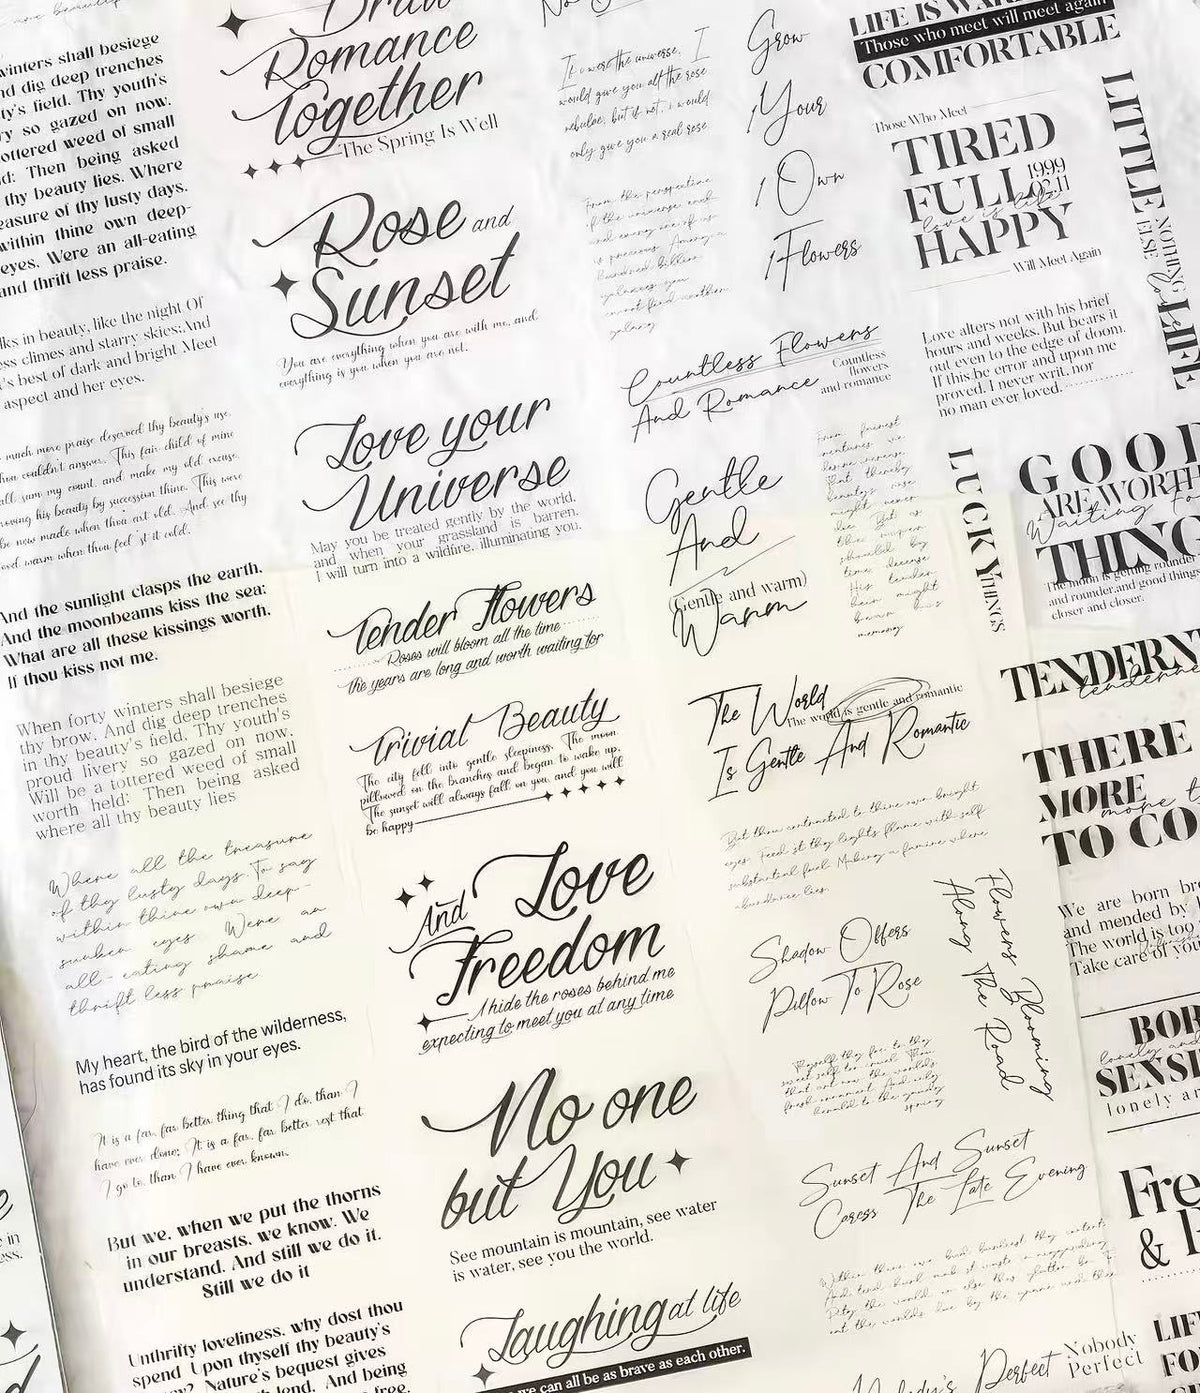 winters shall besiege
and dig deep trenches
field. Thy youth's
so gazed on now.
tottered weed of small
Then being asked
thy beauty lies. Where
thy lusty days.
within thine own deep-
eyes. Were an all-eating
and thrift less praise.
in beauty, like the night Of
climes and starry skies:And
best of dark and bright Meet
aspect and her eyes.
much more praise deserved thy beauty's use,
couldn't answer. This fair child of mine
sum my count, and make my old excuse
his beauty by succession thine. This were
be new made when thou art old. And see thy
warm when thou feel'st it cold.
And the sunlight clasps the earth.
And the moonbeams kiss the sea:
What are all these kissings worth.
If thou kiss not me.
When forty winters shall besiege
thy brow. And dig deep trenches
in thy beauty's field. Thy youth's
proud livery so gazed on now.
Will be a tottered weed of small
worth held: Then being asked
where all thy beauty lies
Where all the treasure
of thy lusty days. To say
within thine own deep-
sunken eyes. Were an
all-eating shame and
thrift less praise.
My heart, the bird of the wilderness,
has found its sky in your eyes.
It is a far, far better thing that I do, than I
have ever done; It is a far, far better rest that
I go to, than I have ever known.
But we. when we put the thorns
in our breasts. we know. We
understand. And still we do it.
Still we do it
Unthrifty loveliness. why dost thou
spend Upon thyself thy beauty's
Nature's bequest gives
lend. And being
free.
Draw
Romance
Together
The Spring Is Well
Rose and
Sunset
You are everything when you are with me, and
everything is you when you are not.
Love your
Universe
May you be treated gently by the world.
and when your grassland is barren.
I will turn into a wildfire. illuminating you.
Tender Flowers
Roses will bloom all the time
the years are long and worth waiting for
Trivial Beauty
The city fell into gentle sleepiness, The moon
pillowed on the branches and began to wake up,
The sunset will always fall on you, and you will
be happy
And Love
Freedom
I hide the roses behind me
expecting to meet you at any time
No one
but You
See mountain is mountain, see water
is water, see you the world.
Laughing at life
we can all be as brave as each other.
If I were the universe, I
would give you all the rose
nebulae, but if not, i would
only give you a real rose
From the perspective
of the universe each
and every one of us
is precious. Among a
hundred billion
galaxies you
cannot find another
galaxy
Grow
Your
Own
Flowers
Countless Flowers
And Romance
Countless
flowers
and romance
Gentle
And
(Gentle and warm)
Warm
From fairest
creatures we
desire increase
That thereby
beauty's rose
might never
die But as
the riper
should by
time decease
His tender
heir might
bear his
memory
The World
The world is gentle and romantic
Is Gentle And Romantic
But thou contracted to thine own bright
eyes Feed'st thy light's flame with self
substantial fuel Making a famine where
abundance lies
Shadow Offers
Pillow To Rose
Flowers Blooming
Along The Road
Thyself thy foe, to thy
sweet self too cruel Thou
that art now the world's
fresh ornament And only
herald to the gaudy
spring
Sunset And Sunset
Caress The Late Evening
Within thine own bud buriest thy content
And tender churl mak'st waste in niggarding
Pity the world or else this glutton be
eat the world's due by the grave and thee
Perfect
Nobody
Perfect
LIFE IS
Those who meet will meet again
COMFORTABLE
Those Who Meet
TIRED
FULL
1999
02.11
love is life
HAPPY
Will Meet Again
LITTLE
NOTHING
ELSE
LIFE
Love alters not with his brief
hours and weeks. But bears it
out even to the edge of doom.
If this be error and upon me
proved. I never writ. nor
no man ever loved.
LUCKY THINGS
ARE WORTH
Waiting For
THING
The moon is getting rounder
and rounder.and good things
closer and closer.
THERE
MORE
TO CO
We are born
and mended by
The world is too
Take care of you
SENSI
lonely
&